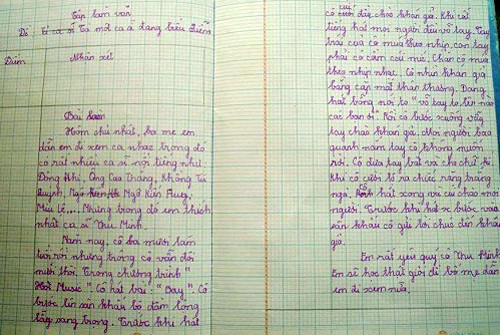 Tập làm văn
Đề : Tả ca sĩ Tả một ca sĩ đang biểu diễn
Điểm Nhận xét
Bài làm
Hôm chủ nhật, ba mẹ em
dẫn em đi xem ca nhạc trong đó
có rất nhiều ca sĩ nổi tiếng như
Đông Nhi, Ông Cao Thắng, Khổng Tú
Quỳnh, Ngô Kiến Huy,
Miu Lê,... Nhưng trong đó em thích
nhất ca sĩ Thu Minh.
Năm nay, cô ba mươi lăm
tuổi rồi nhưng trông cô vẫn đôi
mươi thôi. Trong chương trình "
Hot Music". Cô hát bài: "Bay". Cô
bước lên sân khấu bộ đầm lông
lẫy sang trọng. Trước khi hát
cô cười đây chào khán giả. Khi cất
tiếng hát mọi người đều vỗ tay. Tay
trái của cô múa theo nhịp còn tay
phải cô cầm cái míc. Chân cô múa
theo nhịp nhạc. Cô nhìn khán giả
bằng cặp mắt thân thương. Đang
hát bỗng nói to "vỗ tay to lên nào
các bạn ơi". Rồi cô bước xuống vẫy
tay chào khán giả. Mọi người bao
quanh nắm tay cô không muốn
rời. Cô đưa tay bắt và cho chữ kí.
Khi cô cười lộ ra chiếc răng trắng
ngà. Cô hát xong rồi cúi chào mọi
người. Trước khi hát bước vào
sân khấu cô gửi lời chúc đến khán
giả.
Em rất yêu quý cô Thu Minh.
Em sẽ học thật giỏi để bố mẹ dẫn
em đi xem nữa.